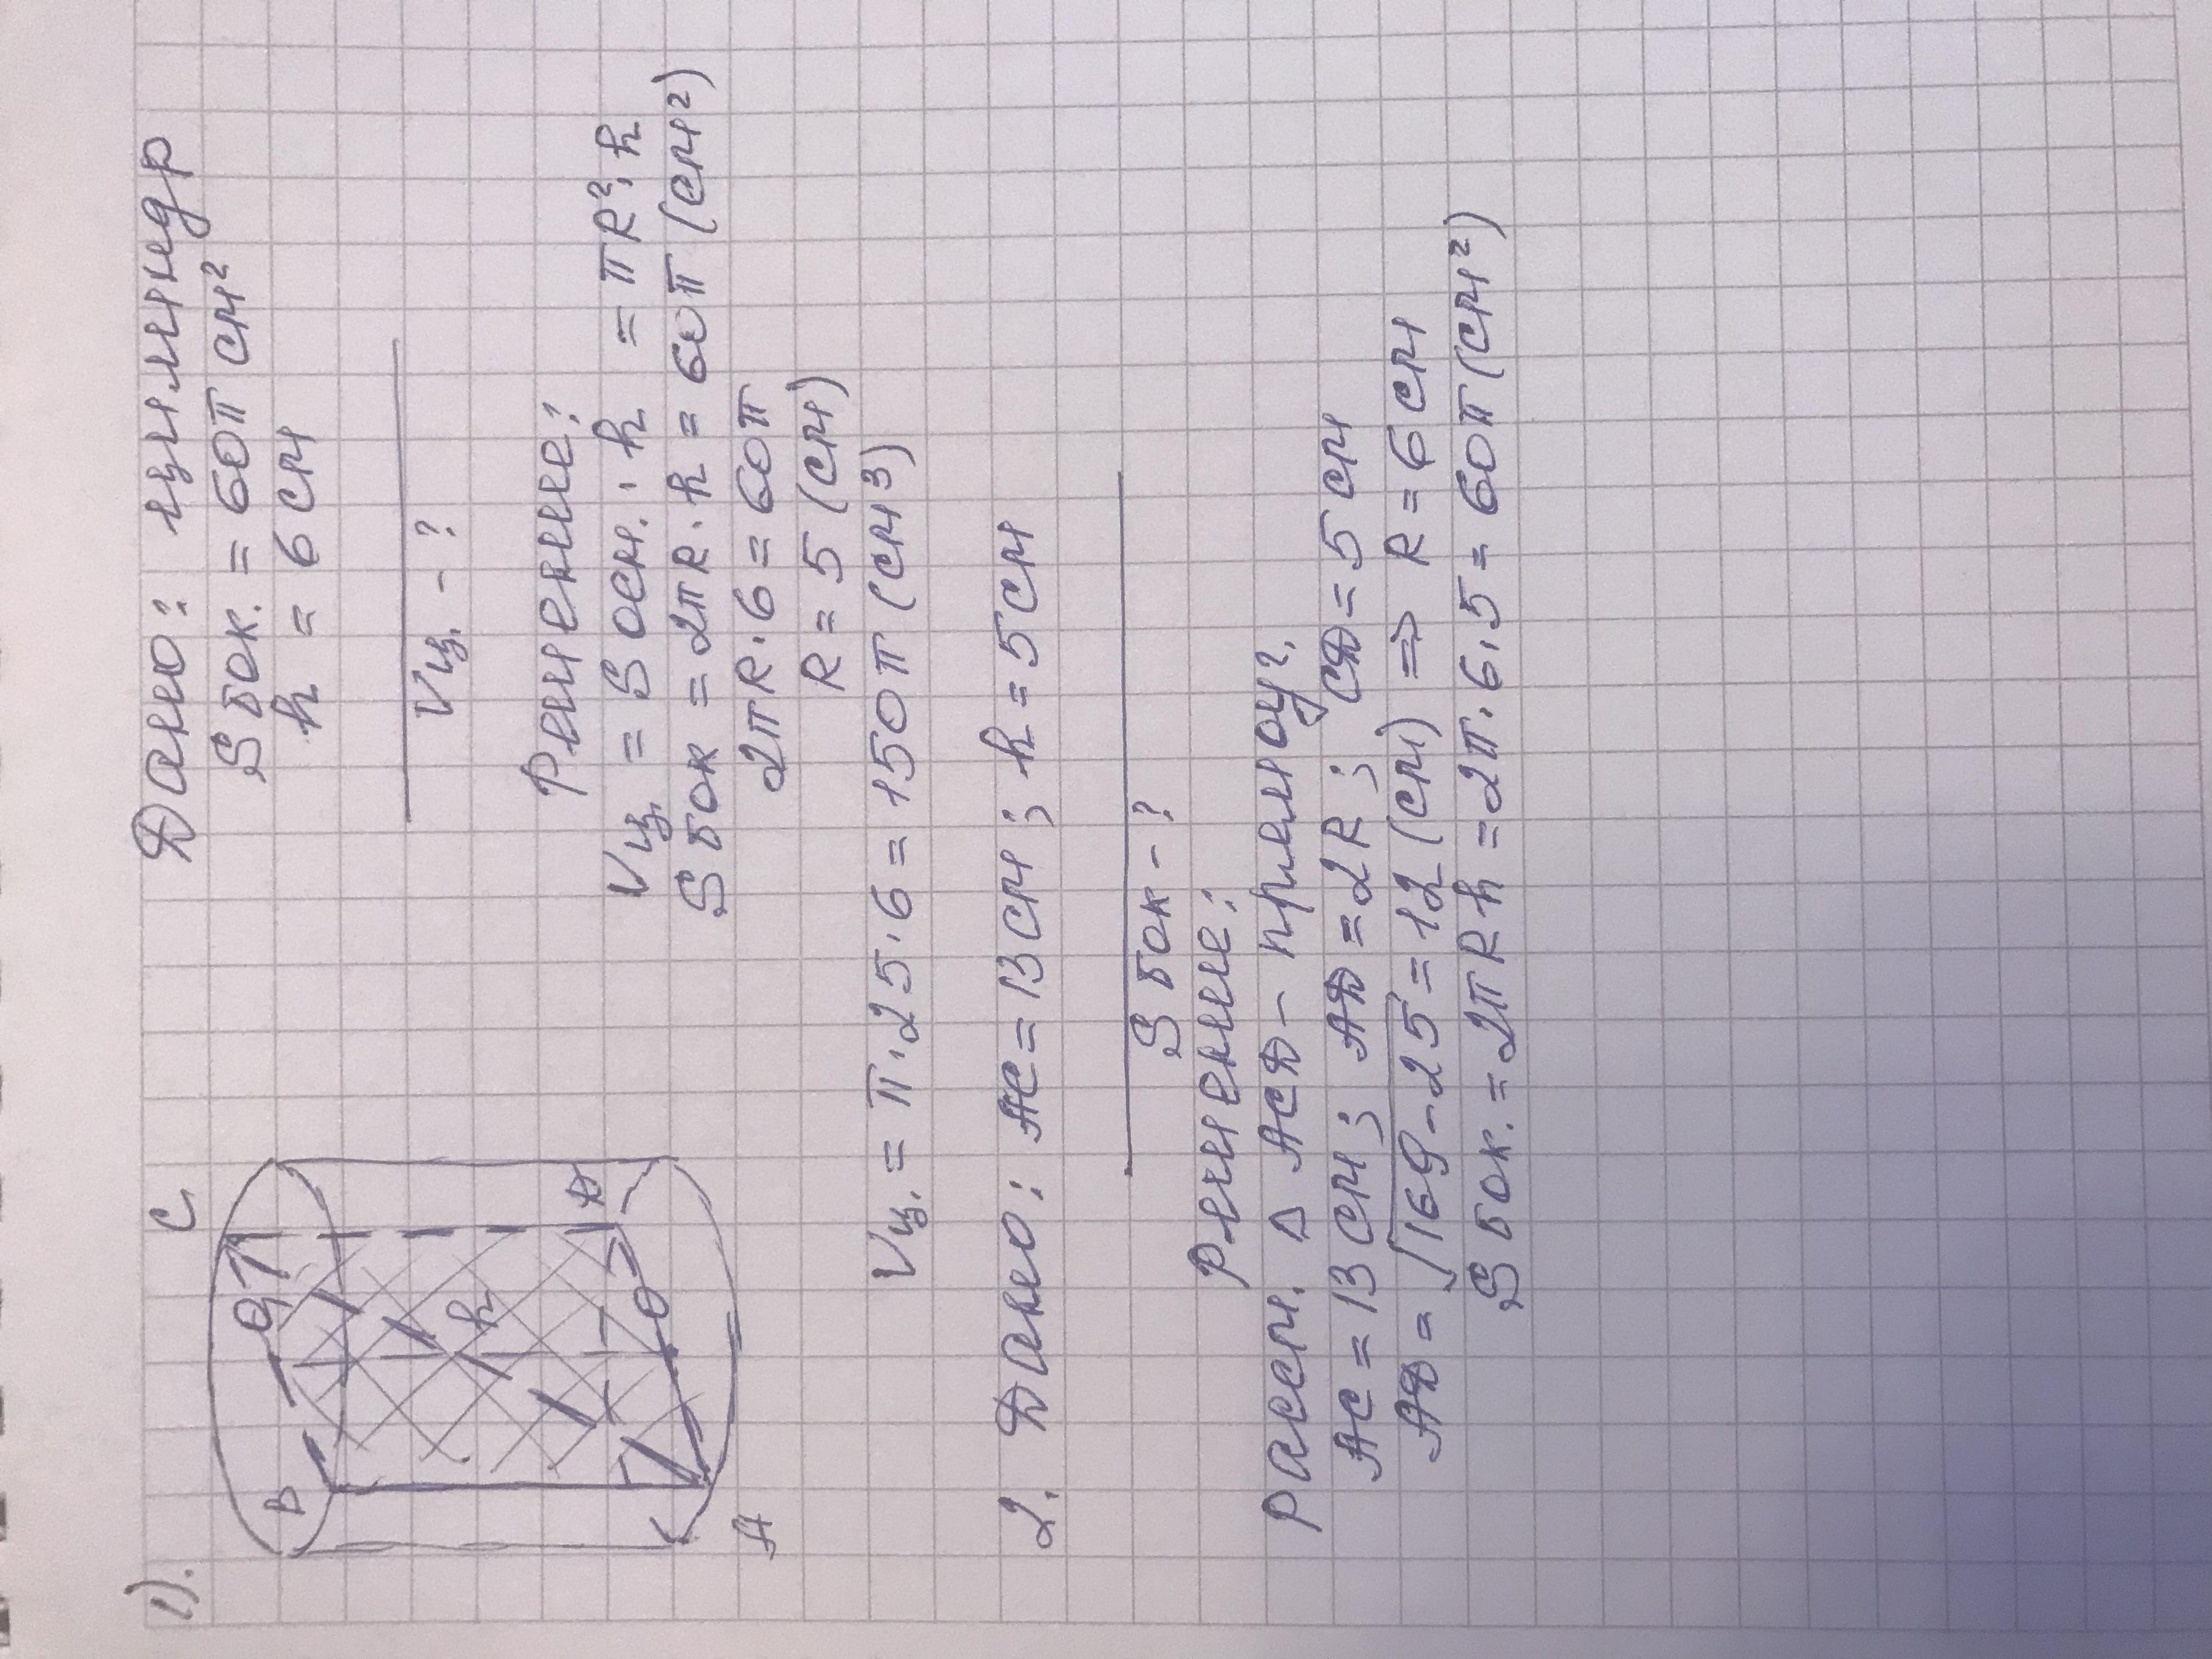 1). Дано: цилиндр
S бок. = 60π см²
h = 6 см
Vц. - ?
B C O₁ h O A D
Решение:
Vц. = S осн. · h = πR²·h
S бок = 2πR·h = 60π (см²)
2πR·6 = 60π
R = 5 (см)
Vц. = π·25·6 = 150π (см³)
2. Дано: AC = 13 см; h = 5 см
S бок - ?
Решение:
Рассм. △ ACD - прямоуг.
AC = 13 см; AD = 2R; CD = 5 см
AD = √169-25 = 12 (см) => R = 6 см
S бок. = 2πRh = 2π·6·5 = 60π (см²)